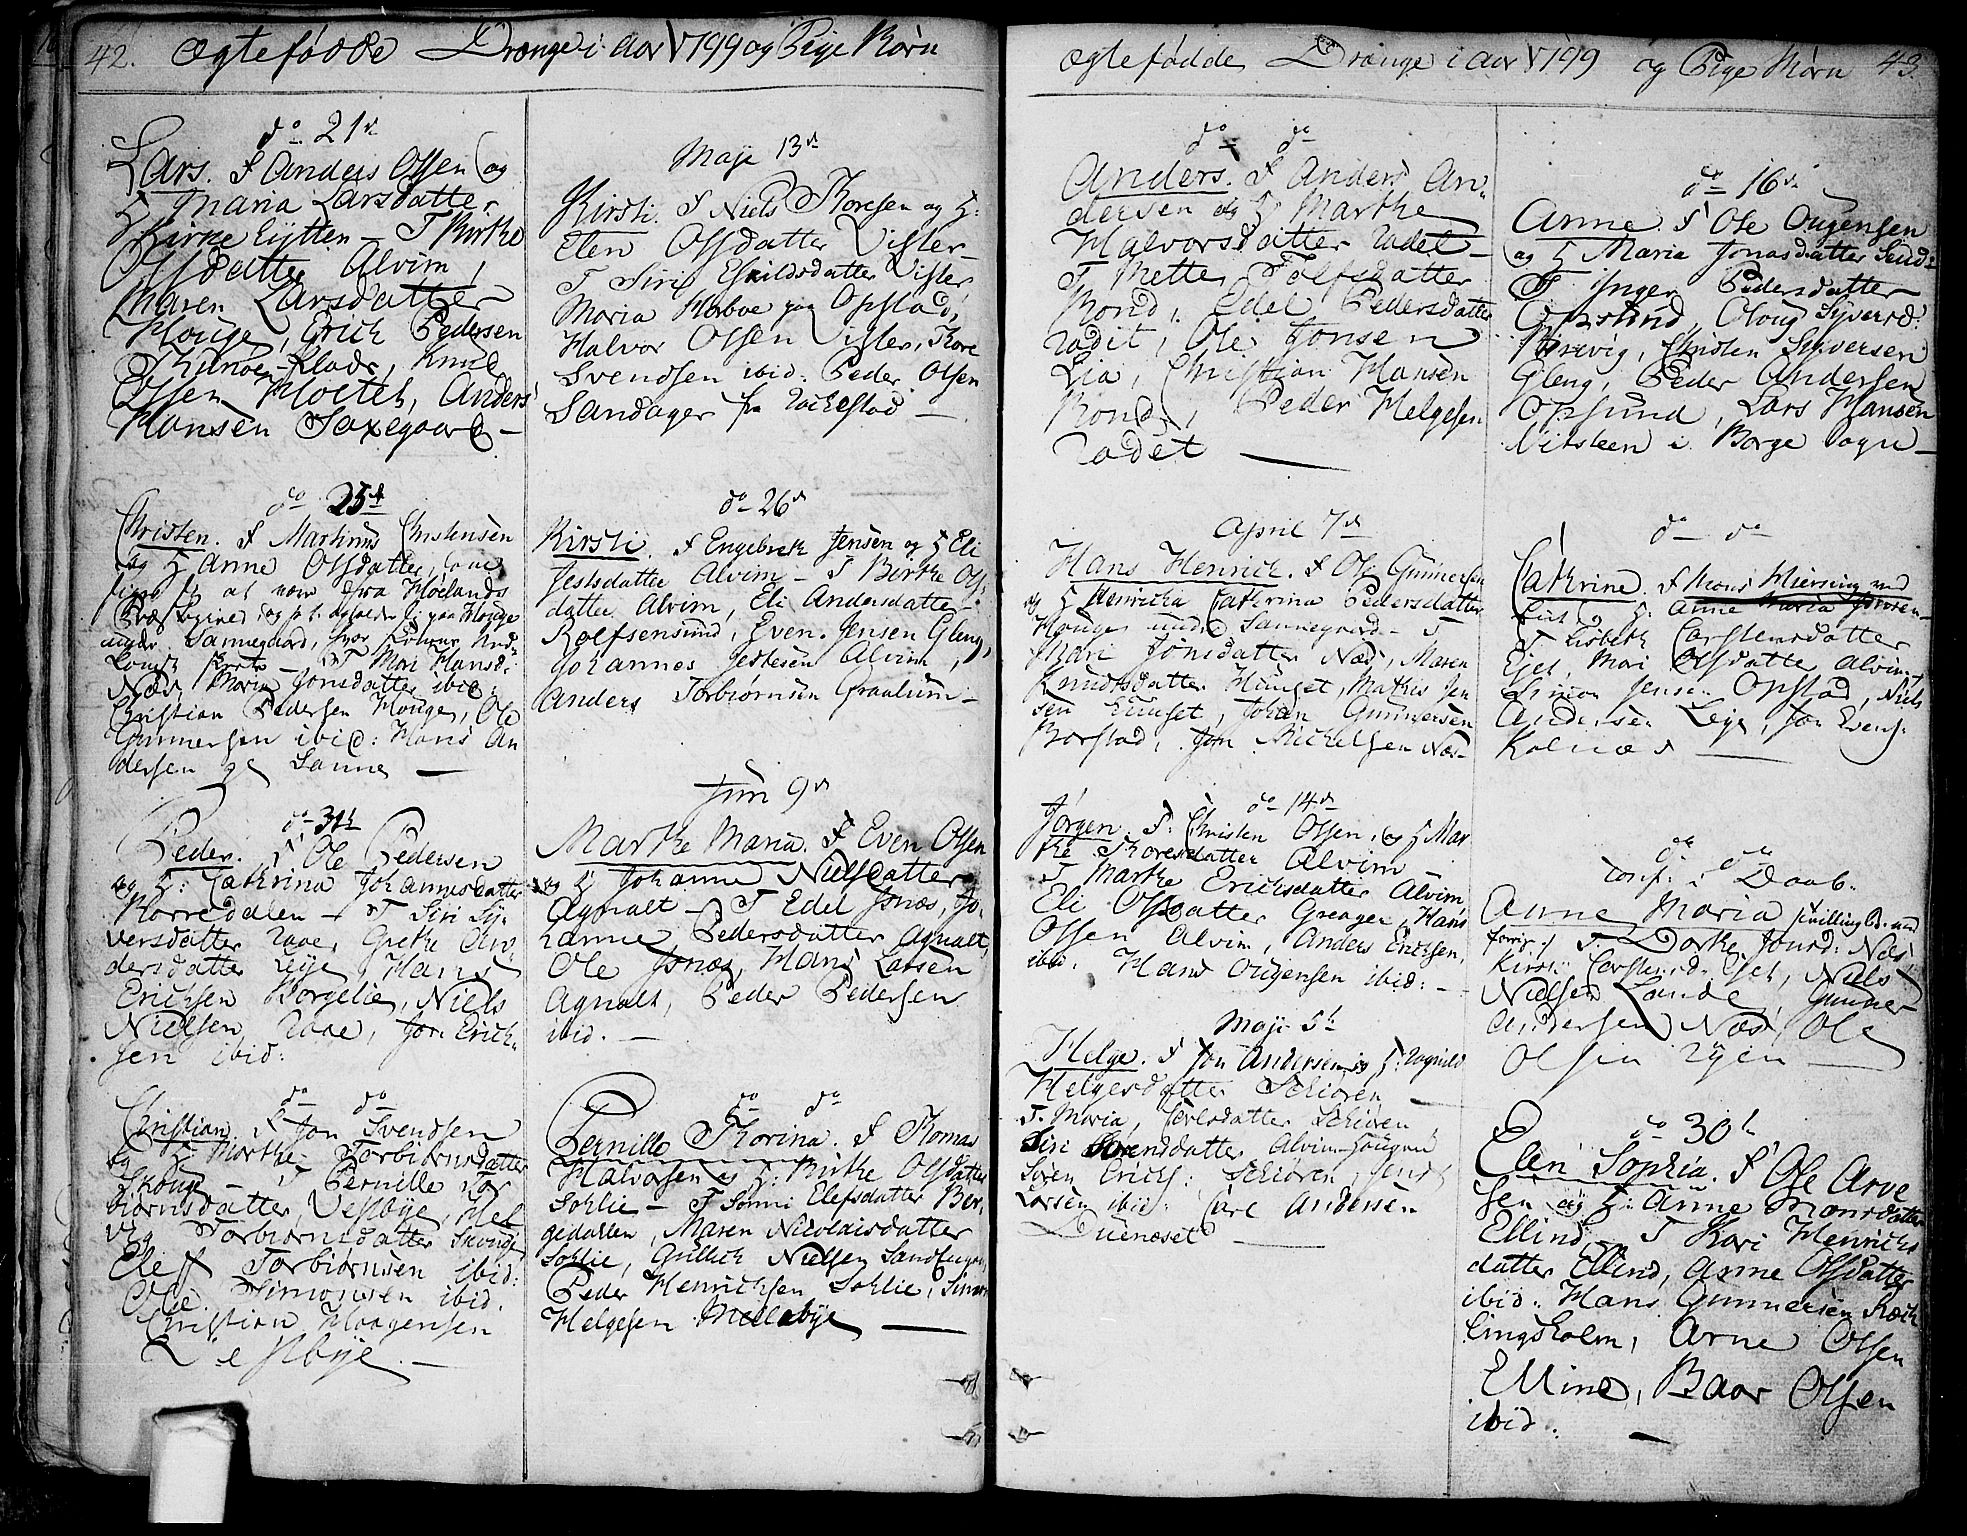 42. Ægtefødde Drenge i Aar 1799 og Pige Børn
do 21de
Lars. F Anders Olsen og
H Maria Larsdatter
Kirke Eijetten - T Birthe
Olsdatter Alvim,
Maren Larsdatter
Houge, Erich Pedersen
Knud
Olsen Anders
Hansen Saxegaard -
do 25de
Christen. F Martinus Christensen
og H Anne Olsdatter,
at være fra Hølands
Præstegield, og p.t. opholde sig paa Houge
under Sannegaard, hvor
T Mari Hansd:
Næs, Maria Jonsdatter ibid:
Christian Pedersen Houge, Ole
Gunnersen ibid: Hans An
dersen Sanne -
do 31te
Peder. F Ole Pedersen
og H: Cathrina Johannesdatter
Korredalen - T Siri Sy
versdatter Raae, Grethe An
dersdatter Leije, Hans
Erichsen Borgelie, Niels
Nielsen Raae, Jon Erich-
sen ibid:
do do
Christian. F Jon Svendsen
og H Marthe Torbiørnsdatter
Skouge - T Pernille Tor
biørnsdatter, Vestbye, Hel
vig Torbiørnsdatter Skouge
Eleff Torbiørnsen ibid:
Ole Simonsen ibid.
Christian Haagensen
Vestbye. -
Maji 13de
Kirsti. F Niels Thoresen og H:
Elen Olsdatter Visler -
T Siri Eskildsdatter Visler
Maria paa Opstad,
Halvor Olsen Visler, Thore
Svendsen ibid: Peder Olsen
Sandager fra Rackestad -
do 26de
Kirsti. F Engebreth Jensen og H Eli
Jestsdatter Alvim - T Birthe Ols
datter Alvim, Eli Andersdatter
Rolfsensund, Even Jensen Gleng,
Johannes Jestesen Alvim,
Anders Torbiørnsen Graalum -
Juni 9de
Marthe Maria. F Even Olsen
og H Johanne Nielsdatter
Agnalt - T Edel Jonæs, Jo-
hanne Pedersdatter Agnalt,
Ole Jonæs, Hans Larsen
Agnalt, Peder Pedersen
ibid. -
do do
Pernille Thorina. F Thomas
Halvorsen og H: Birthe Olsdatter
Sohlie - T Sønni Elefsdatter Ber-
gedallen, Maren Nicolaisdatter
Sohlie, Gullich Nielsen
Peder Henrichsen Sohlie, Simon
Helgesen Mellebye -
Ægtefødde Drenge i Aar 1799 og Pige Børn 43.
do do
Anders. F Anders An
dersen og H Marthe
Halvorsdatter Radet -
T Mette Tolfsdatter
Rond, Edel Pedersdatter
Radet, Ole Jonsen
Lia, Christian Hansen
Rond, Peder Helgesen
Radet -
April 7de
Hans Henrich. F Ole Gunnersen
og H Henricha Catherina Pedersdatter
Houge under Sannegaard - T
Mari Jonsdatter Næs, Maren
Knudsdatter Huuset, Mathis Jen
sen Huuset, Johan Gunnersen
Borstad, Jon Michelsen Næs -
do 14de
Jørgen. F: Christen Olsen, og H Mar
the Thoresdatter Alvim -
T Marthe Erichsdatter Alvim
Eli Olsdatter Greager, Hans
Olsen Alvim, Anders Erichsen,
ibid. Hans Ougensen ibid: -
Maji 5te
Helge. F Jon Andersen og H: Ragnild
Helgesdatter Schiøren -
T. Maria Schiøren
Siri Sørensdatter Alvim
Søren Erichs: Schiøren, Jens
Larsen ibid: Carl Andersen
Duenæset -
do 16de
Anne. F Ole Ougensen
og H Maria Jonasdatter
T Inger Pedersdatter
Opsund, Oloug Syversd:
Brevig, Christen Syversen
Gleng, Peder Andersen
Opsund, Lars Hansen
Nitsteen i Borge Sogn -
do do
Cathrine. F
og H: Anne Maria Jensen
T Lisbeth Carstensdatter
Mari Olsdatter Alvim
Simon Jensen Opstad, Niels
Andersen Leije, Jon Evens:
Kolnæs -
do do
conf. i Daab.
Anne Maria Tvilling B. med
forrige. T. Dorthe Jonsd: Næs
Niels
Nielsen Lande, Gunner
Andersen Næs, Ole
Olsen Ryen -
do 30te
Elen Sophia. F Ole Arve
sen og H: Anne Monsdatter
Ellind - T Kari Henrichs
datter Ellind, Anne Olsdatter
ibid: Hans Gunnersen
lingsholm, Arne Olsen
Ellind, Baar Olsen
ibid: -